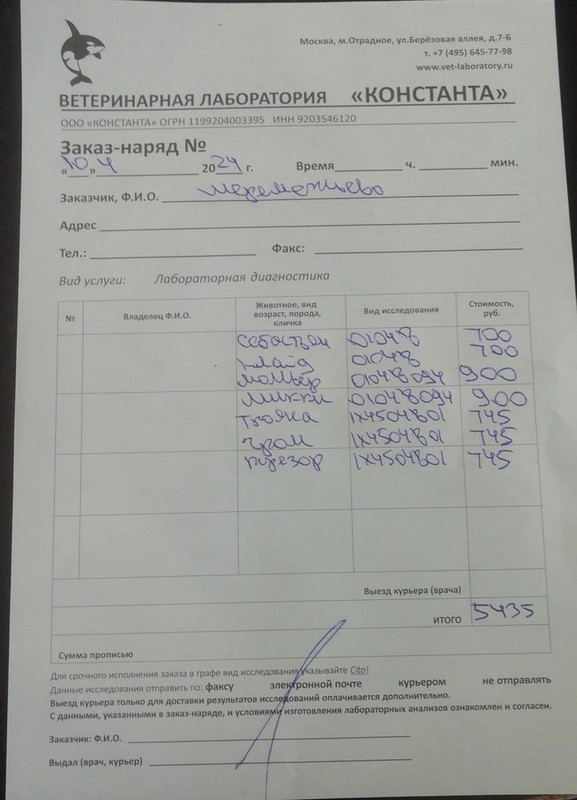 Москва, м.Отрадное, ул.Берёзовая аллея, д.7-Б
т. +7 (495) 645-77-98
www.vet-laboratory.ru
ВЕТЕРИНАРНАЯ ЛАБОРАТОРИЯ «КОНСТАНТА»
ООО «КОНСТАНТА» ОГРН 1199204003395 ИНН 9203546120
Заказ-наряд №
«10» 4 2024 г. Время ч. мин.
Заказчик, Ф.И.О.
Адрес
Тел.: Факс:
Вид услуги: Лабораторная диагностика
№ Владелец Ф.И.О. Животное, вид возраст, порода, кличка Вид исследования Стоимость, руб.
Себастьян 01048 700
Клайд 01048 700
Мольер 01048094 900
Микки 01048094 900
1х4504801 745
Гром 1х4504801 745
Трезор 1х4504801 745
Выезд курьера (врача)
ИТОГО 5435
Сумма прописью
Для срочного исполнения заказа в графе вид исследования указывайте Cito!
Данные исследования отправить по: факсу электронной почте курьером не отправлять
Выезд курьера только для доставки результатов исследований оплачивается дополнительно.
С данными, указанными в заказ-наряде, и условиями изготовления лабораторных анализов ознакомлен и согласен.
Заказчик: Ф.И.О.
Выдал (врач, курьер)